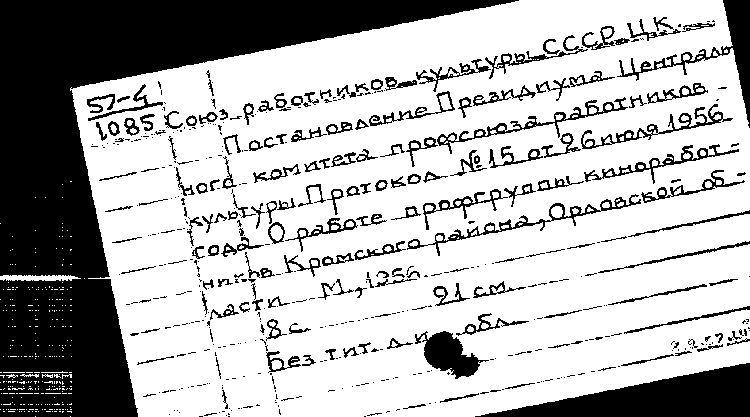 57-4
1085
Союз работников культуры СССР ЦК.
Постановление Президиума Централь
ного комитета профсоюза работников -
культуры. Протокол №15 от 26 июля 1956
года О работе профгруппы киноработ=
ников Кромского района, Орловской об-
ласти М., 1956.
8 с. 21 см.
Без тит. л. и обл.